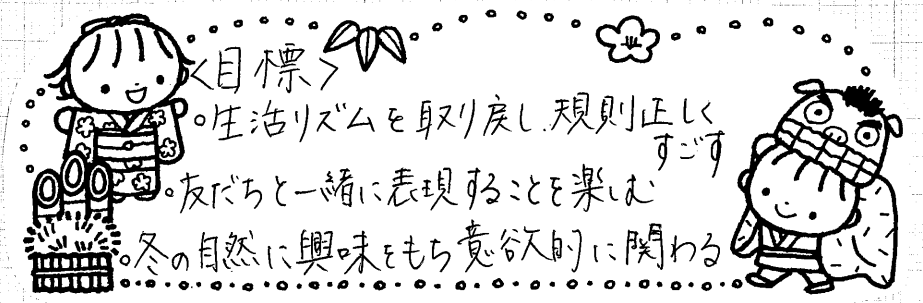 <目標>
○生活リズムを取り戻し、規則正しく
すごす
○友だちと一緒に表現することを楽しむ
○冬の自然に興味をもち意欲的に関わる